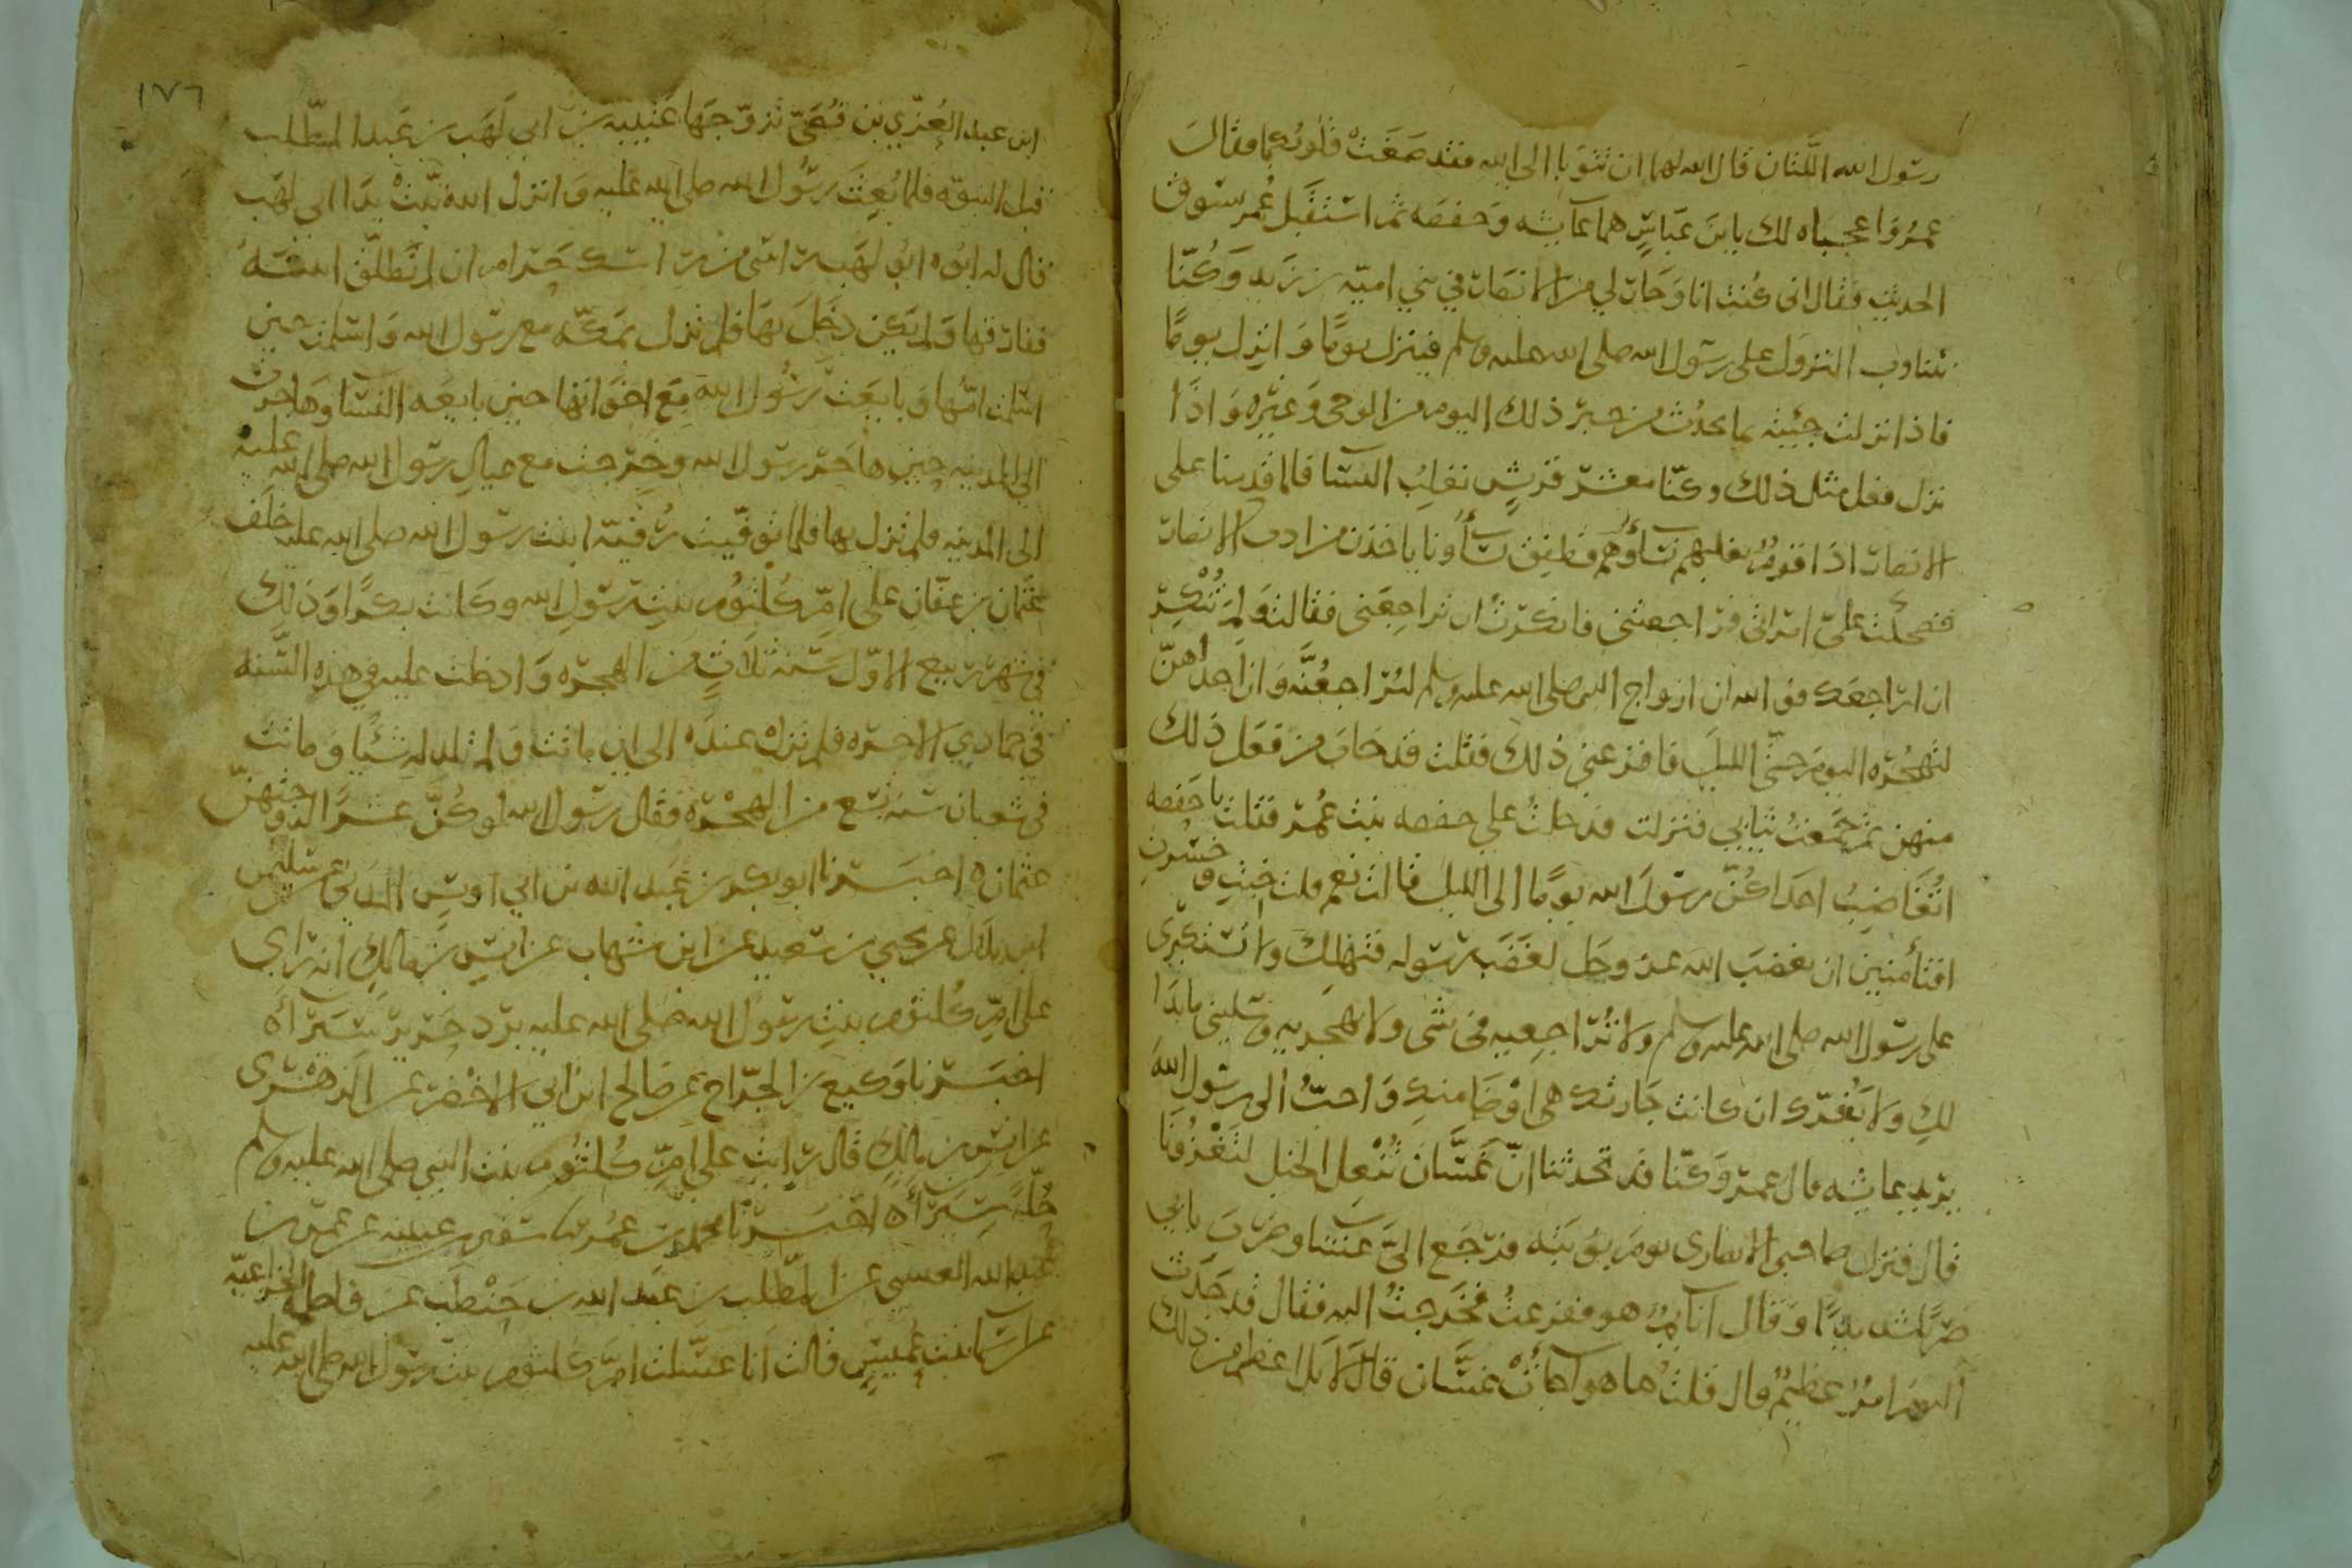 رسول الله اللتان قال الله لهما ان تتوبا الى الله فقد صغت قلوبكما فقال
عمر واعجباه لك يا بن عباس هما عائشه وحفصه ثم استقبل عمر يسوق
الحديث فقال انى كنت انا وجار لي من الانصار في بني امية بن زيد وكنا
نتناوب النزول على رسول الله صلى الله عليه وسلم فينزل يوما وانزل يوما
فاذا نزلت جئته بما يحدث من خبر ذلك اليوم من الوحي وغيره واذا
نزل فعل مثل ذلك وكنا معشر قريش نغلب النسا فلما قدمنا على
الانصار اذا قوم تغلبهم نساؤهم فطفق نساؤنا ياخذن من ادب الانصار
فصحت على امراتى فراجعتني فانكرت ان تراجعني فقالت ولم تنكر
ان اراجعك فوالله ان ازواج النبي صلى الله عليه وسلم ليراجعنه وان احداهن
لتهجره اليوم حتى الليل فافزعني ذلك فقلت قد خاب من فعل ذلك
منهن ثم جمعت ثيابي فنزلت فدخلت على حفصه بنت عمر فقلت يا حفصه
اتغاضب احداكن رسول الله يوما الى الليل قالت نعم قلت خبت وخسرت
افتأمنين ان يغضب الله عز وجل لغضب رسوله فتهلك ولا تستكبرى
على رسول الله صلى الله عليه وسلم ولا تراجعيه في شى ولا تهجريه وسليني ما بدا
لك ولا يغرك ان كانت جارتك هي اوضا منك واحب الى رسول الله
يريد عائشه قال عمر وكنا قد تحدثنا ان غسان تنعل الخيل لتغزونا
قال فنزل صاحبي الانصارى يوم نوبته فرجع الى عشا وضرب بابي
ضربا شديدا وقال انائم هو ففزعت فخرجت اليه فقال قد حدث
اليوم امر عظيم قال قلت ما هو اجات غسان قال لا بل اعظم من ذلك
١٧٦
ابن عبد العزي بن قصي تزوجها عتيبه بن ابي لهب بن عبد المطلب
قبل النبوه فلما بعث رسول الله صلى الله عليه وانزل الله تبت يدا ابي لهب
قال له ابوه ابو لهب راسي من راسك حرام ان لم تطلق ابنته
ففارقها ولم يكن دخل بها فلم تزل بمكه مع رسول الله واسلمت حين
اسلمت امها وبايعت رسول الله مع اخواتها حين بايعه النسا وهاجرت
الى المدينه حين هاجر رسول الله وخرجت مع عيال رسول الله صلى الله عليه
الى المدينه فلم تزل بها فلما توفيت رقية ابنت رسول الله صلى الله عليه خلف
عثمان بن عفان على ام كلثوم بنت رسول الله وكانت بكرا وذلك
في شهر ربيع الاول سنة ثلاث من الهجره وادخلت عليه في هذه السنه
في جمادي الاخره فلم تزل عنده الى ان ماتت ولم تلد له شيا وماتت
في شعبان سنة تسع من الهجره فقال رسول الله لو كن عشرا لزوجتهن
عثمان ه اخبرنا ابو بكر بن عبد الله بن ابي اويس المدني عن سليمن
ابن بلال عن يحيي بن سعيد عن ابن شهاب عن انس بن مالك انه راي
على ام كلثوم بنت رسول الله صلى الله عليه برد حرير سيراه
اخبرنا وكيع بن الجراح عن صالح ابن ابي الاخضر عن الزهري
عن انس بن مالك قال رايت على ام كلثوم بنت النبي صلى الله عليه وسلم
حلة سيراه اخبرنا محمد بن عمر سفين بن عيينه عن عمر بن
عبد الله العبسي عن المطلب بن عبد الله بن حنطب عن فاطمة الخزاعيه
عن اسما بنت عميس قالت انا غسلت ام كلثوم بنت رسول الله صلى الله عليه